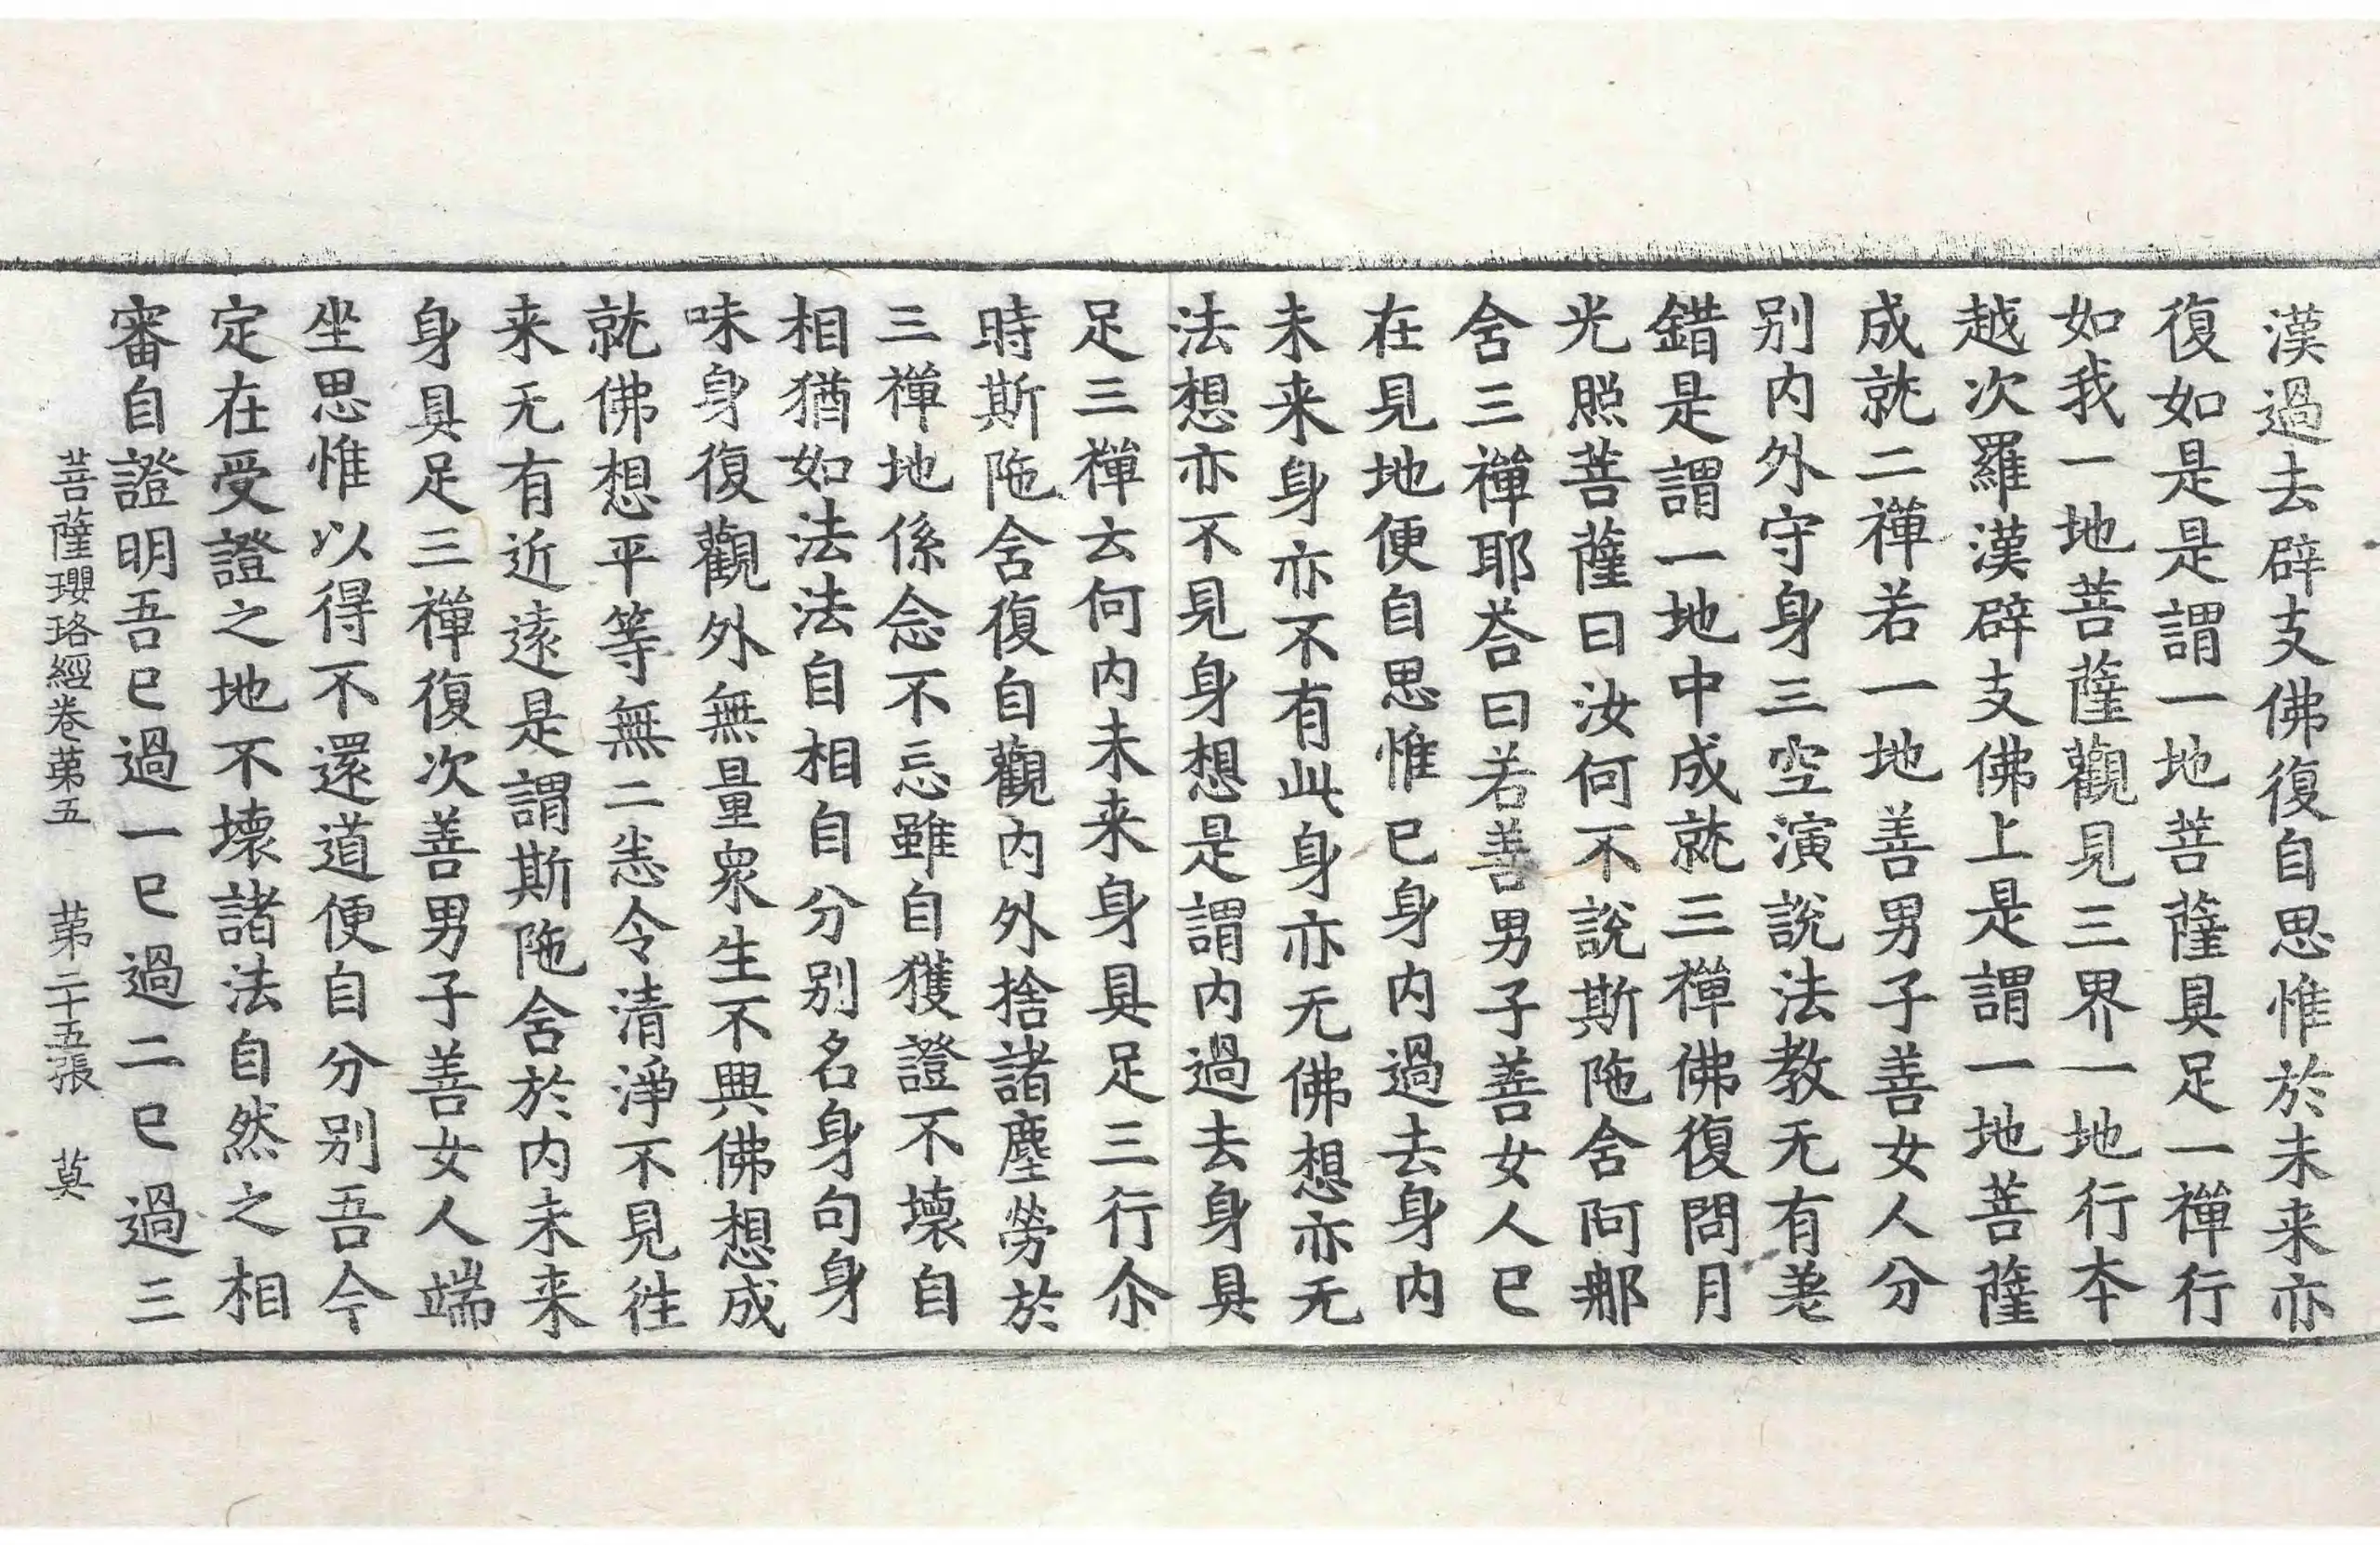 漢過去辟支佛復自思惟於未来亦
復如是是謂一地菩薩具足一禪行
如我一地菩薩觀見三界一地行本
越次羅漢辟支佛上是謂一地菩薩
成就二禪若一地善男子善女人分
別内外守身三空演說法教无有差
錯是謂一地中成就三禪佛復問月
光照菩薩曰汝何不說斯陁含阿那
含三禪耶荅曰若善男子善女人已
在見地便自思惟已身内過去身内
未来身亦不有此身亦无佛想亦无
法想亦不見身想是謂内過去身具
足三禪云何内未来身具足三行尒
時斯陁含復自觀内外捨諸塵勞於
三禪地係念不忘雖自獲證不壞自
相猶如法法自相自分別名身句身
味身復觀外無量衆生不興佛想成
就佛想平等無二悉令清淨不見往
来无有近遠是謂斯陁含於内未来
身具足三禪復次善男子善女人端
坐思惟以得不還道便自分別吾今
定在受證之地不壞諸法自然之相
審自證明吾已過一已過二已過三
菩薩瓔珞經卷苐五 苐二十五張 莫